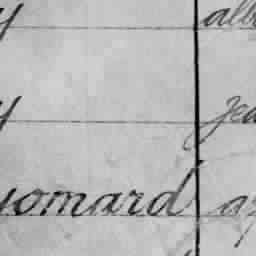 y alb
y Jea
yomard a